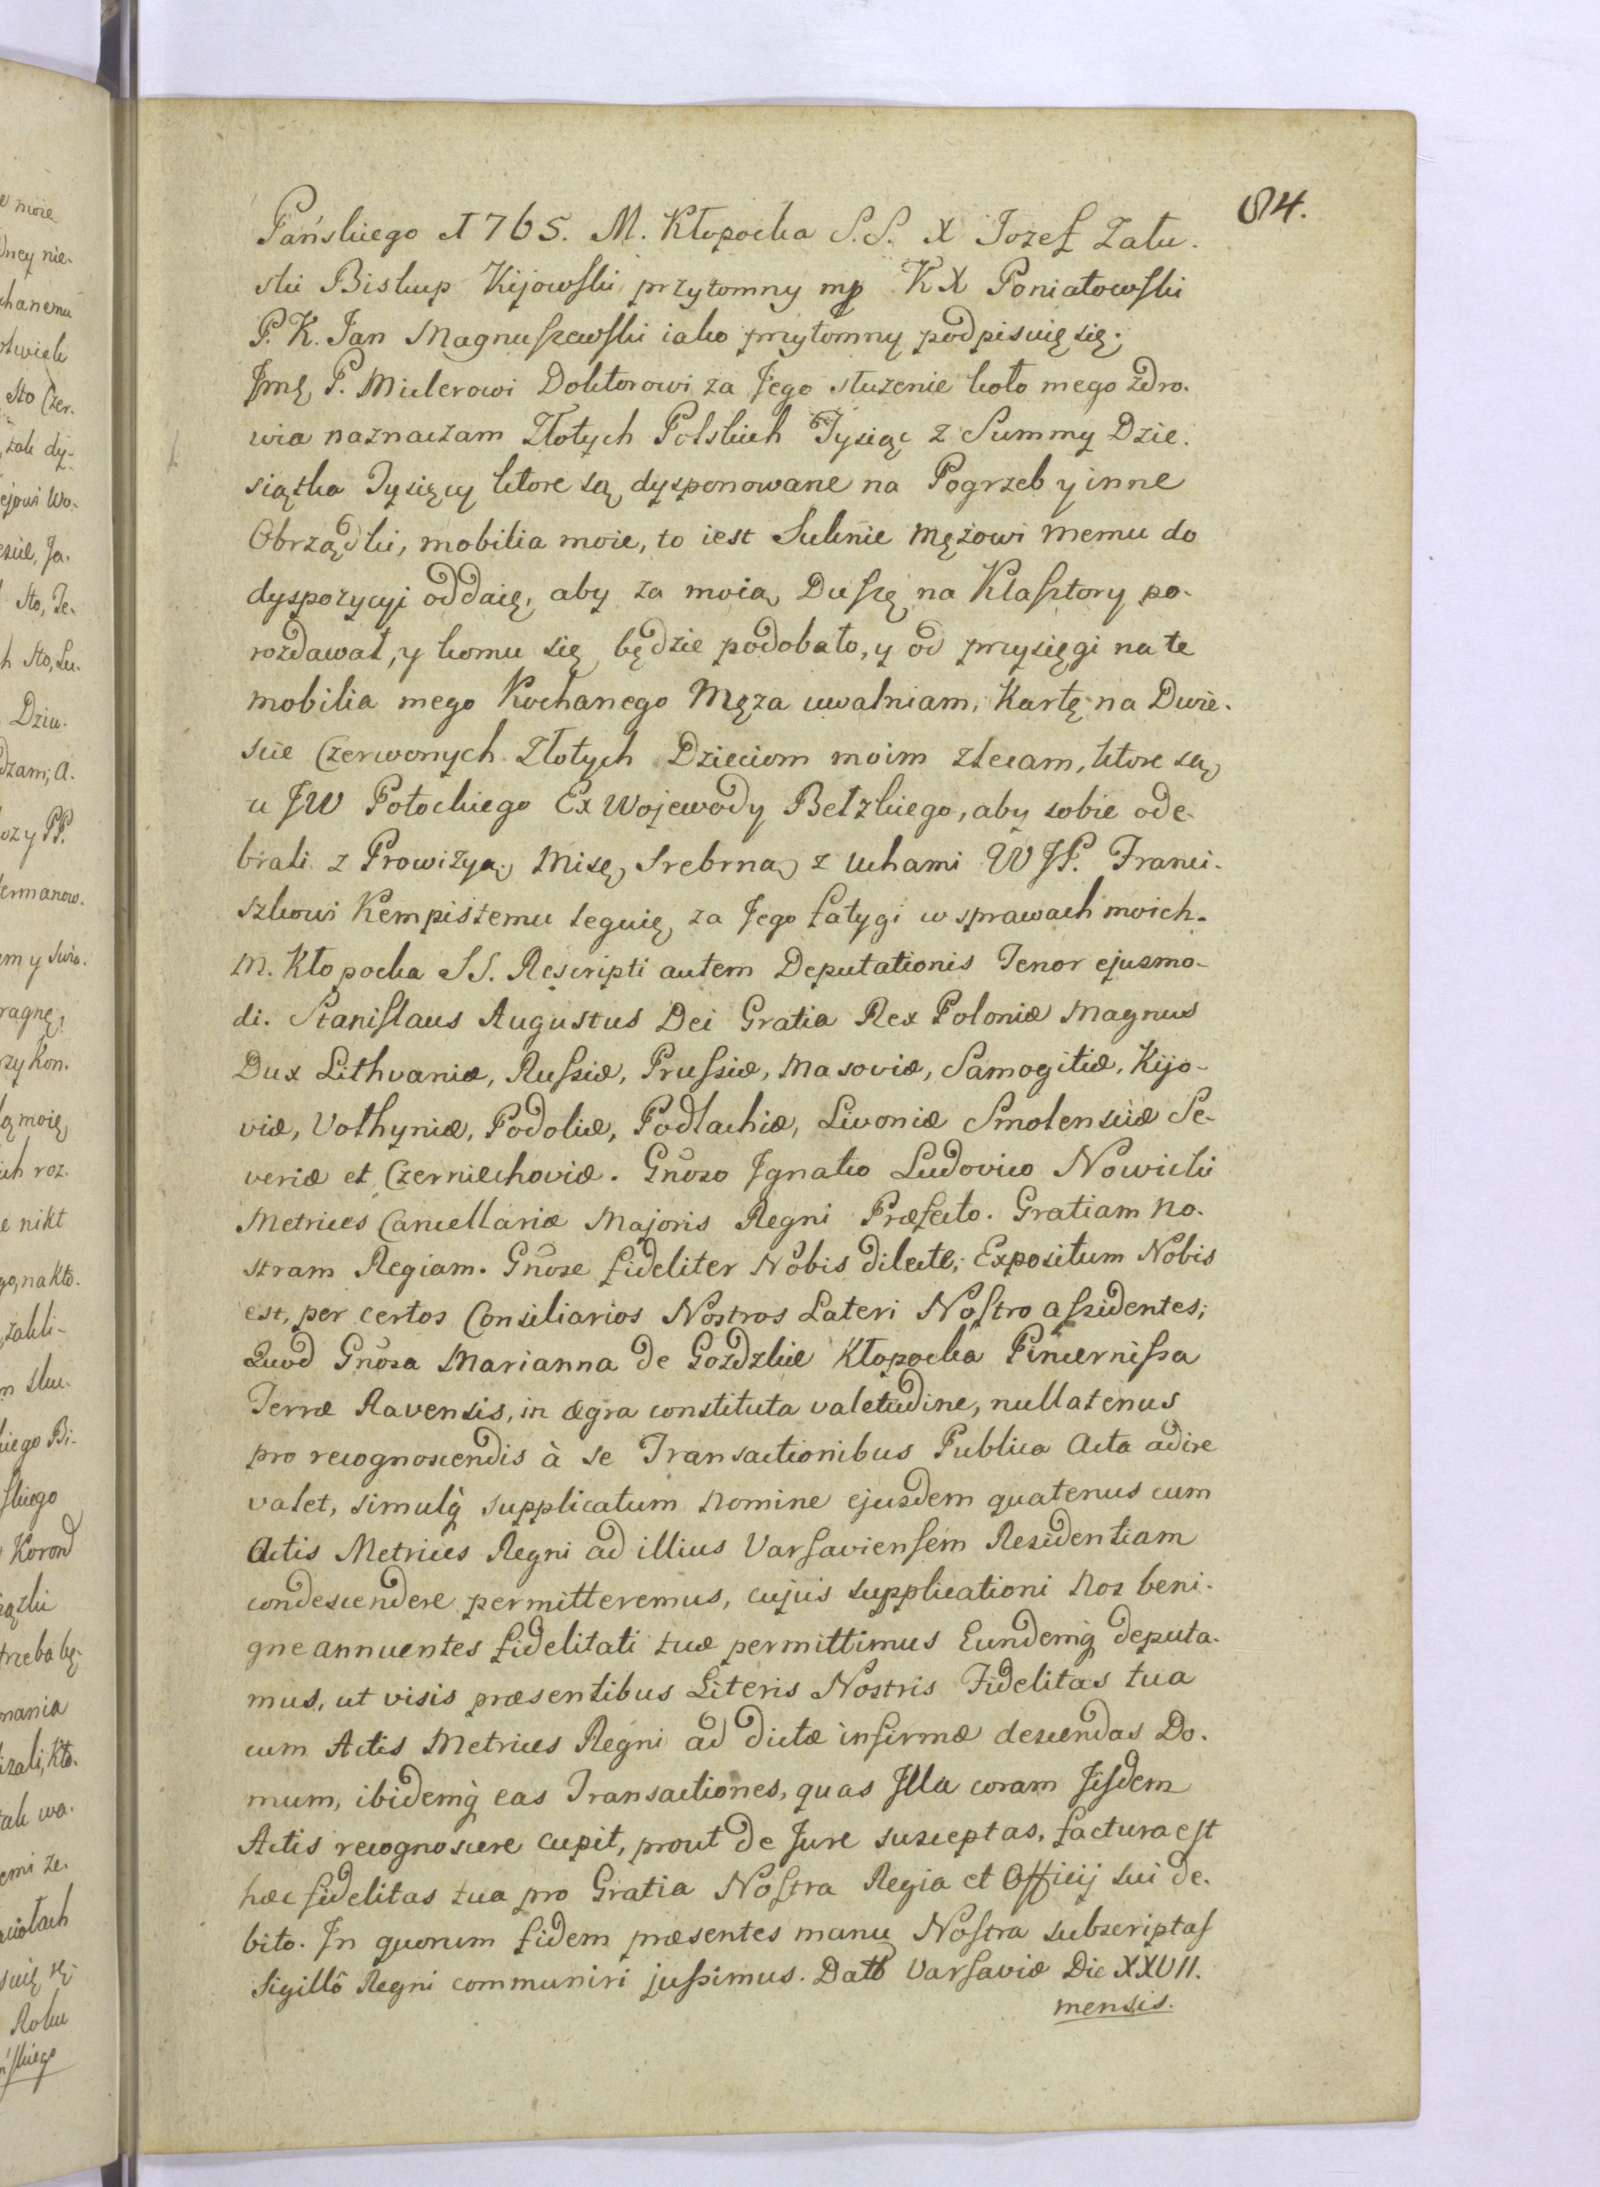 84.
Pańskiego 1765. M. Kłopocka S.S. X Jozef Zału.
ski Biskup Kijowski przytomny mp K X Poniatowski
P. K. Jan Magnuszewski iako przytomny podpisuię się;
Jmę P. Mulerowi Doktorowi za Jego służenie koło mego zdro.
wia naznaczam Złotych Polskich Tysiąc z Summy Dzie.
siątka Tysięcy ktore są dysponowane na Pogrzeb y inne
Obrządki, mobilia moie, to iest Suknie Mężowi memu do
dyspozycyi oddaię, aby za moią Duszę na Klasztory po.
rozdawał, y komu się będzie podobało, y od przysięgi na te
mobilia mego Kochanego Męża uwalniam, Kartę na Dwie.
scie Czerwonych Złotych Dzieciom moim zlecam, ktore są
u JW Potockiego Ex Wojewody Bełzkiego, aby sobie ode.
brali z Prowizyą, Misę Srebrną z uchami WJP. Franci.
szkowi Kempistemu leguię za Jego fatygi w sprawach moich.
M. Kłopocka SS. Rescripti autem Deputationis Tenor ejusmo-
di. Stanislaus Augustus Dei Gratia Rex Poloniæ Magnus
Dux Lithvaniæ, Russiæ, Prussiæ, Masoviæ, Samogitiæ, Kijo-
viæ, Volhyniæ, Podoliæ, Podlachiæ, Livoniæ Smolensciæ Se-
veriæ et Czerniechoviæ. Gnõso Ignatio Ludovico Nowicki
Metrices Cancellariæ Majoris Regni Præfecto. Gratiam No.
stram Regiam. Gnõse fideliter Nobis dilecte; Expositum Nobis
est, per certos Consiliarios Nostros Lateri Nostro assidentes;
Quod Gnõsa Marianna de Gozdzkie Kłopocka Pincernissa
Terræ Ravensis, in ægra constituta valetudine, nullatenus
pro recognoscendis à se Transactionibus Publica Acta adire
valet, simulq̀ supplicatum Nomine ejusdem quatenus cum
Actis Metrices Regni ad illius Varsaviensem Residentiam
condescendere permitteremus, cujus supplicationi Nos beni.
gne annuentes fidelitati tuæ permittimus Eundemq̀ deputa.
mus, ut visis præsentibus Literis Nostris Fidelitas tua
cum Actis Metrices Regni ad dictæ infirmæ descendas Do.
mum, ibidemq̀ eas Transactiones, quas Illa coram Iisdem
Actis recognoscere cupit, prout de Jure suscept as, factura est
hæc fidelitas tua pro Gratia Nostra Regia et Officij sui de.
bito. In quorum fidem præsentes manu Nostra subscriptas
Sigillô Regni communiri jussimus. Datt Varsaviæ Die XXVII.
mensis.